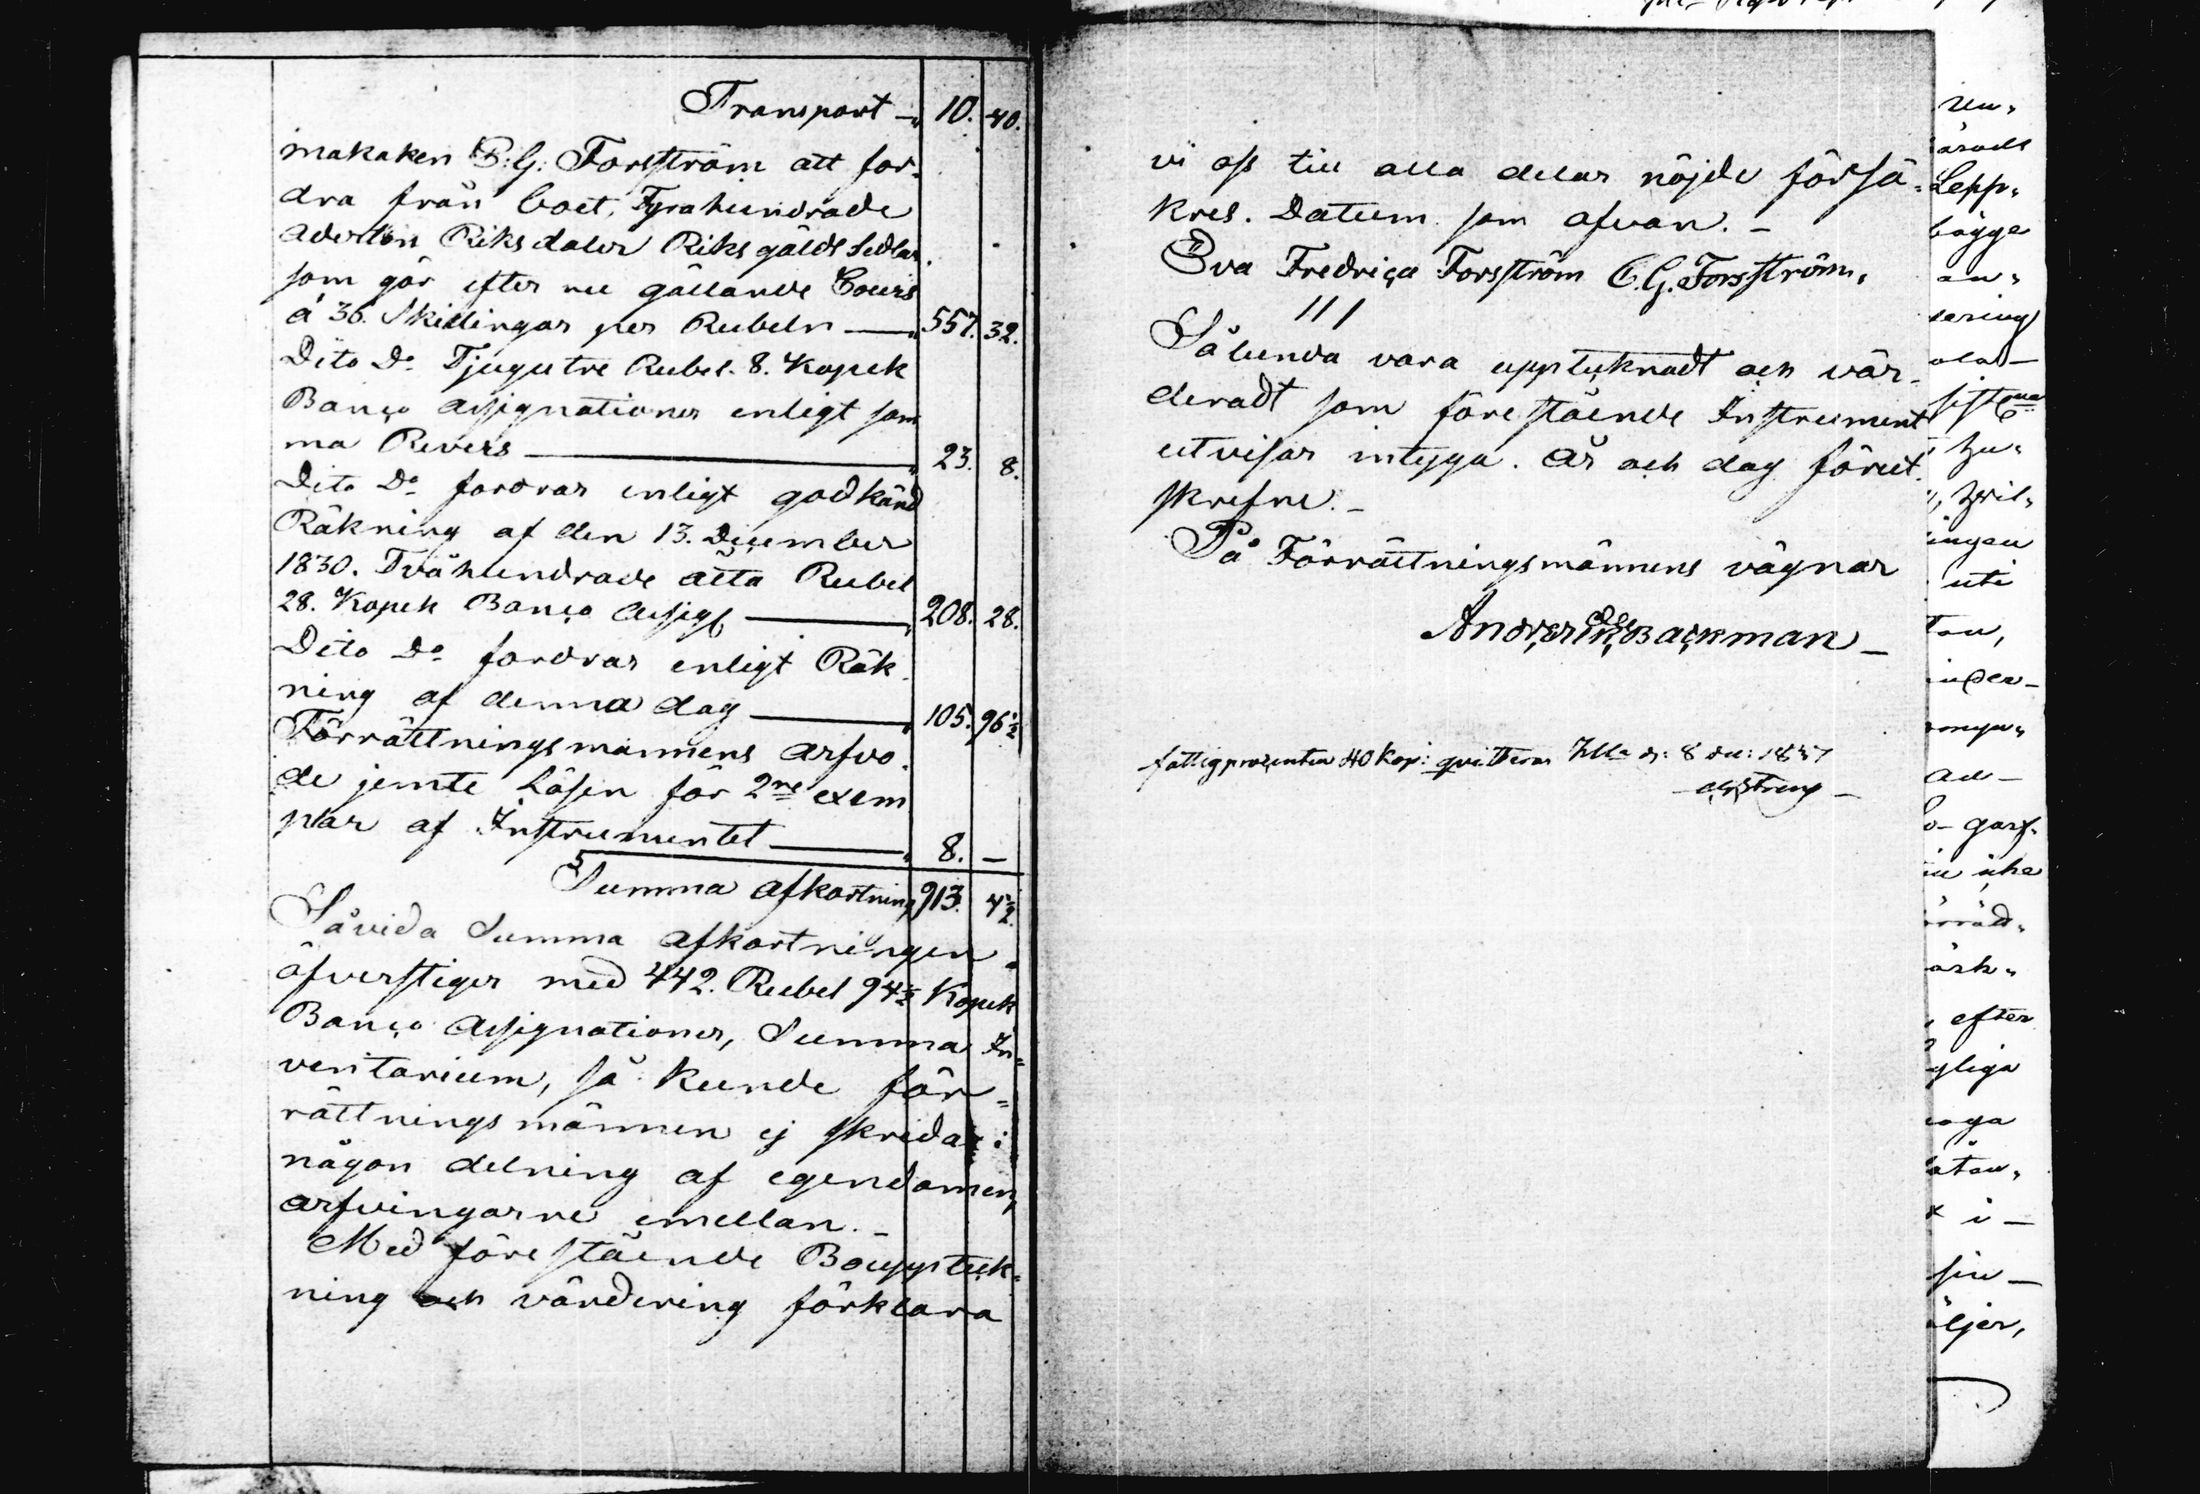 Transport — 10. 40.
makaken C: G: Forsström att for-
dra från boet, Fyrahundrade
aderton Riksdaler Riksgälds Sedlar
som gör efter nu gällande Cours
á 36. Skillingar per Rubeln — 557. 32.
Dito Do Tjugutre Rubel. 8. Kopek
Banco Assignationer enligt sam
ma Revers — 23. 8.
Dito Do fordrar enligt godkänd
Räkning af den 13. December
1830. Tvåhundrade åtta Rubel
28. Kopek Banco Assig — 208. 28.
Dito Do fordrar enligt Räk
ning af denna dag — 105. 96½
Förrättningsmannens arfvo
de jemte Lösen för 2ne exem
plar af Instrumentet — 8. —
Summa afkortning 913. 4½
Såvida Summa afkortningen
öfverstiger med 442. Rubel 94½ Kopek
Banco Assignationer, Summa In=
ventarium, så kunde för=
rättningsmännen ej skrida i
någon delning af egendomen,
arfvingarne emellan. —
Med förestående Bouppteck=
ning och värdering förklara
vi oss till alla delar nöjde försä=
kres. Datum som ofvan. —
Eva Fredrica Forsström C. G. Forsström.
Sålunda vara upptecknadt och vär-
deradt som förestående Instrument
utvisar intyga. År och dag förut
skrefne. —
På Förrättningsmännens vägnar
Backman —
fattigprocenten 40 Kop: qvitteras d: 8 dec: 1837
ren-
Lepp-
bägge
an-
sering
hu-
ingen
uti
ad —
efter
gliga
x i —
sin —